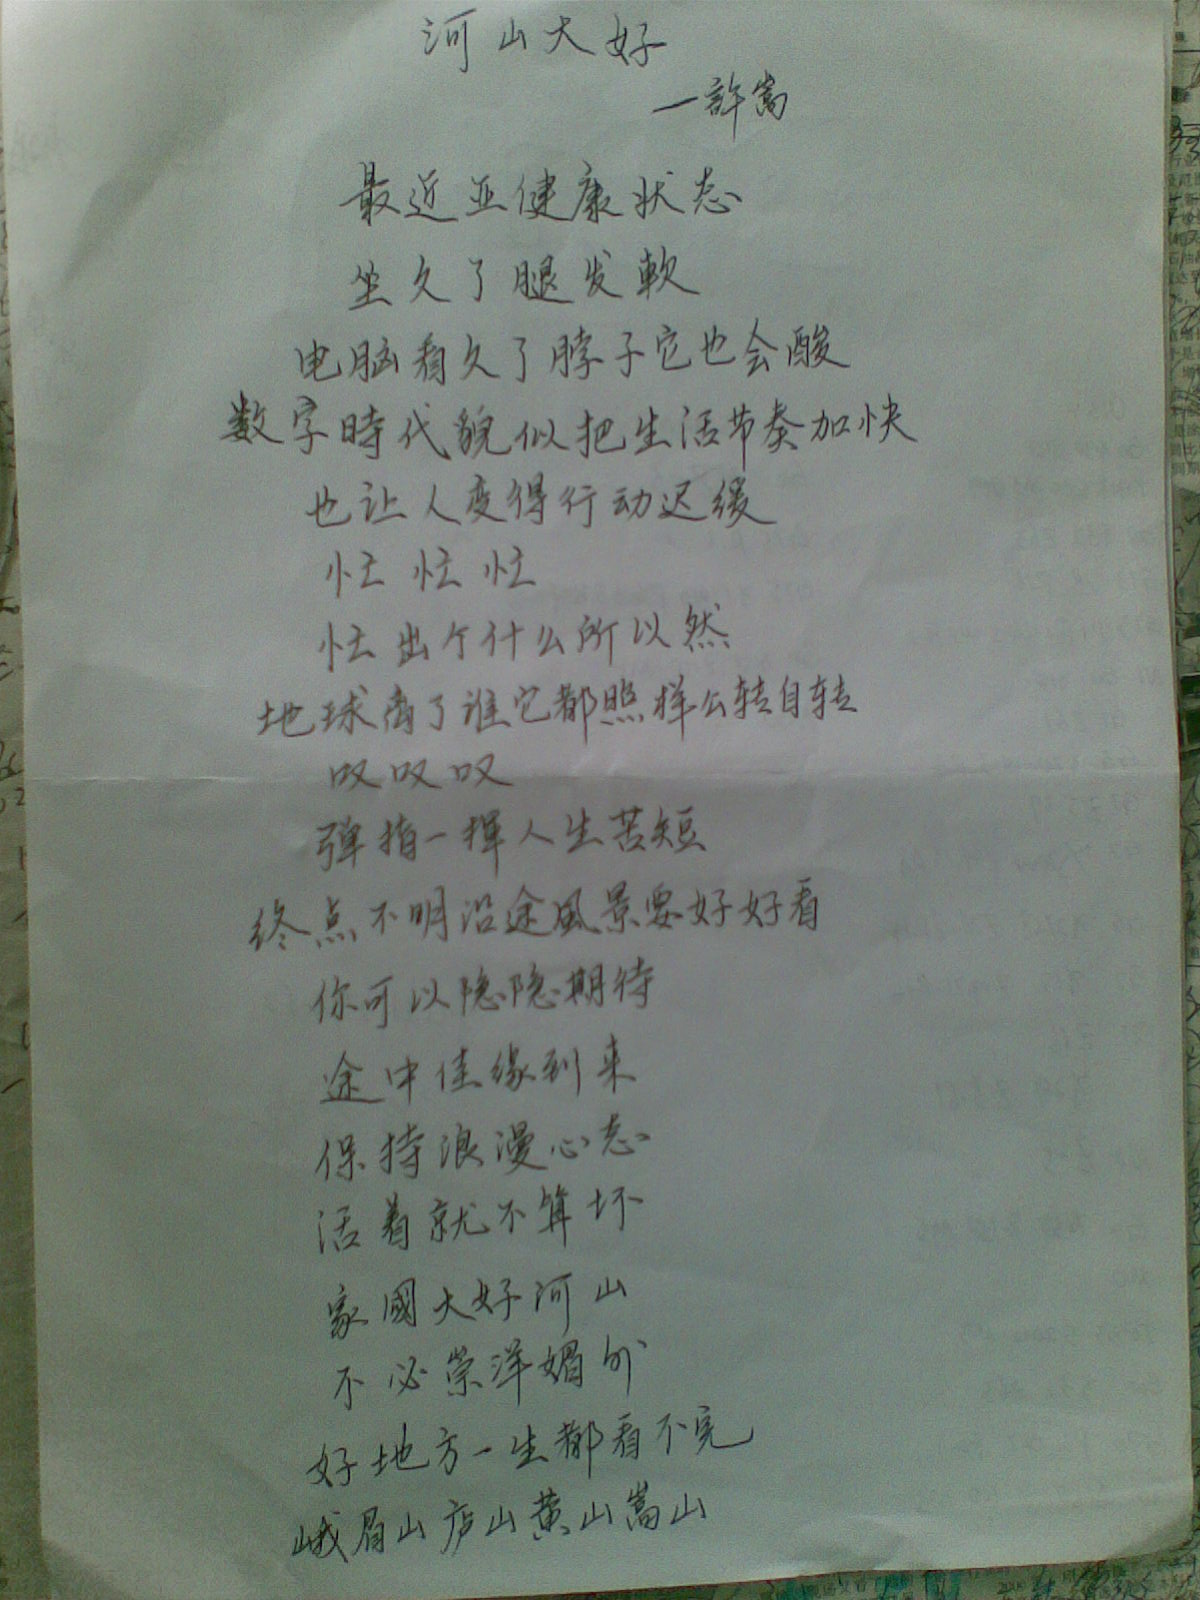 河山大好
一許嵩
最近亚健康状态
坐久了腿发軟
电脑看久了脖子它也会酸
数字時代貌似把生活节奏加快
也让人变得行动迟缓
忙忙忙
忙出个什么所以然
地球离了谁它都照样公转自转
叹叹叹
弹指一挥人生苦短
终点不明沿途風景要好好看
你可以隐隐期待
途中佳缘到来
保持浪漫心态
活着就不算坏
家國大好河山
不必崇洋媚外
好地方一生都看不完
峨眉山庐山黄山嵩山